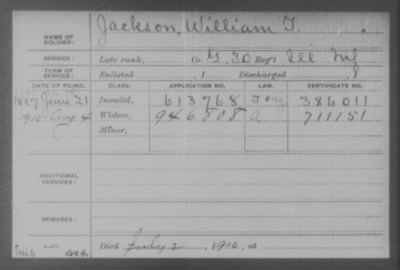 NAME OF SOLDIER: Jackson, William T.
SERVICE: Late rank, Co. G, 30 Reg't Ill Inf
TERM OF SERVICE: Enlisted , 1 Discharged , 1
DATE OF FILING. CLASS. APPLICATION NO. LAW. CERTIFICATE NO.
1887 June 21 Invalid, 613768 386011
1910 Aug 4 Widow, 946808 a 711151
Minor,
ADDITIONAL SERVICES:
REMARKS:
Died July 2, 1910, at